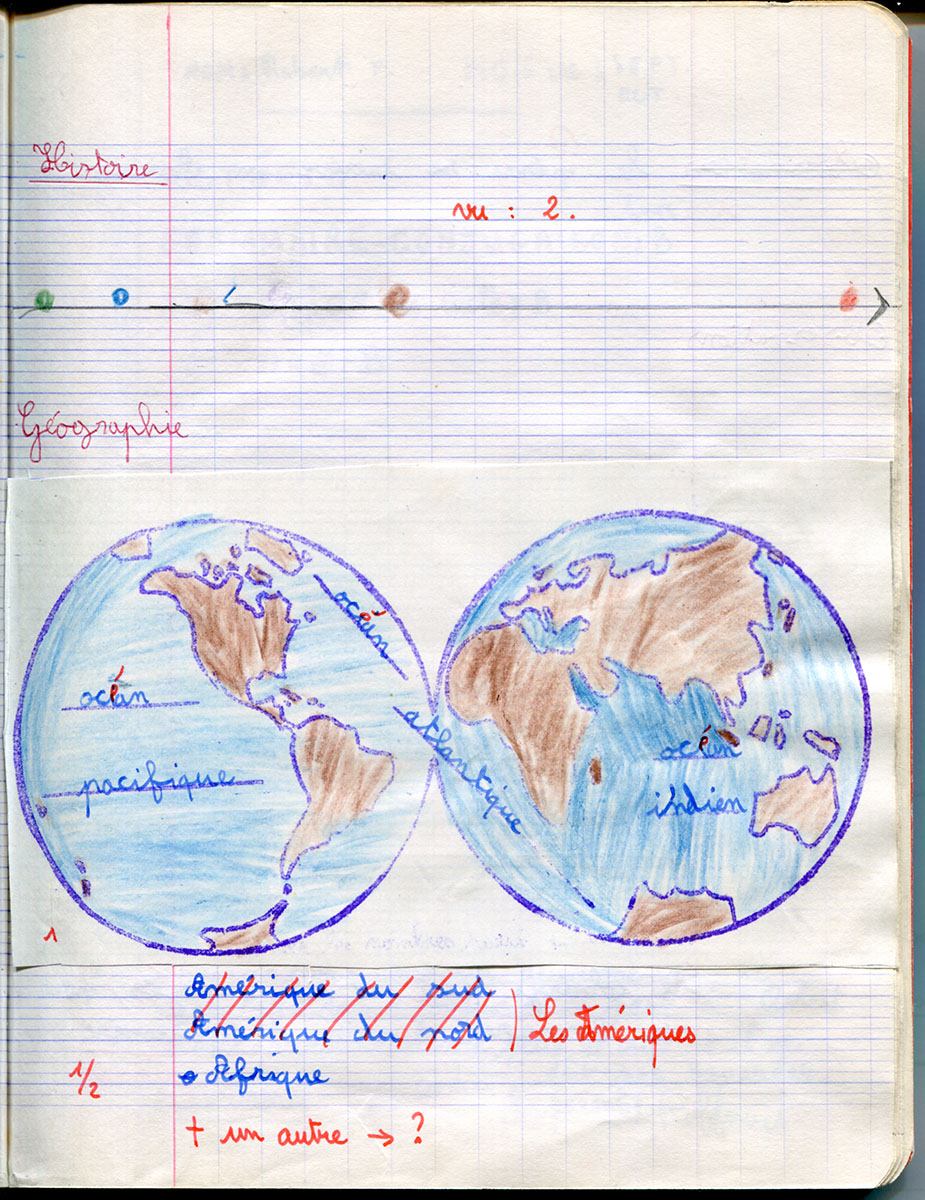 Histoire
vu : 2.
Géographie
océan
océan
pacifique
atlantique
océan
indien
1
Amérique du sud
Amérique du nord ) Les Amériques
1/2
Afrique
+ un autre → ?